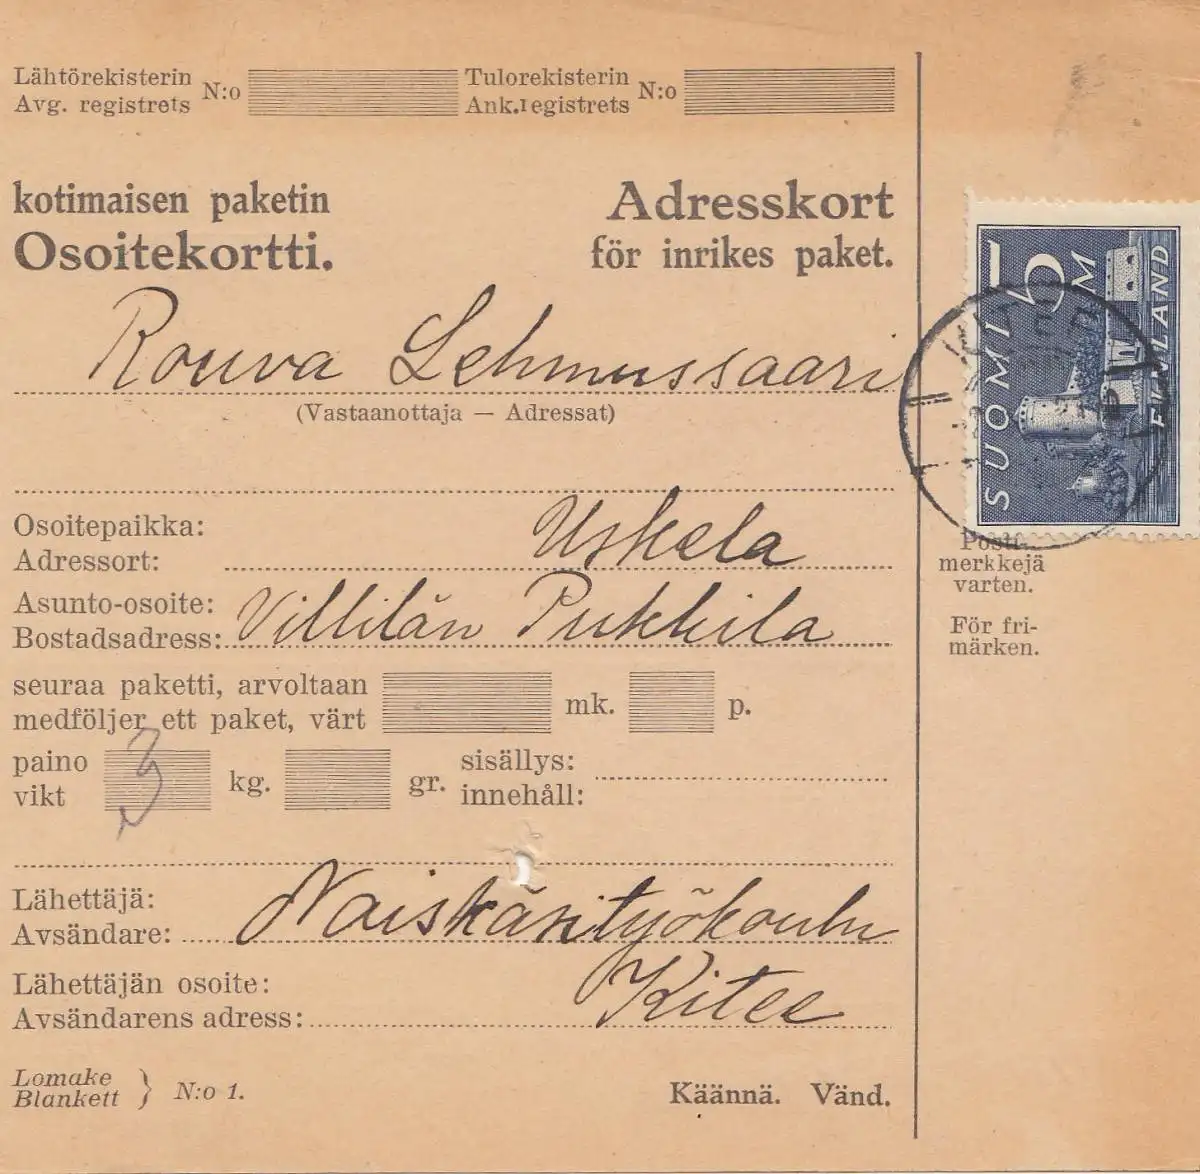 Lähtörekisterin N:o
Avg. registrets
Tulorekisterin N:o
Ank.registrets
kotimaisen paketin
Osoitekortti.
Adresskort
för inrikes paket.
Rouva Lehmussaari
(Vastaanottaja — Adressat)
Osoitepaikka:
Adressort: Uskela
Asunto-osoite:
Bostadsadress: Villilän Pukkila
seuraa paketti, arvoltaan
medföljer ett paket, värt mk. p.
paino
vikt 3 kg. gr.
sisällys:
innehåll:
Lähettäjä:
Avsändare: Naiskäsityökoulu
Lähettäjän osoite:
Avsändarens adress: Kitee
Lomake
Blankett } N:o 1.
Käännä. Vänd.
5 M
SUOMI FINLAND
Posti-
merkkejä
varten.
För fri-
märken.